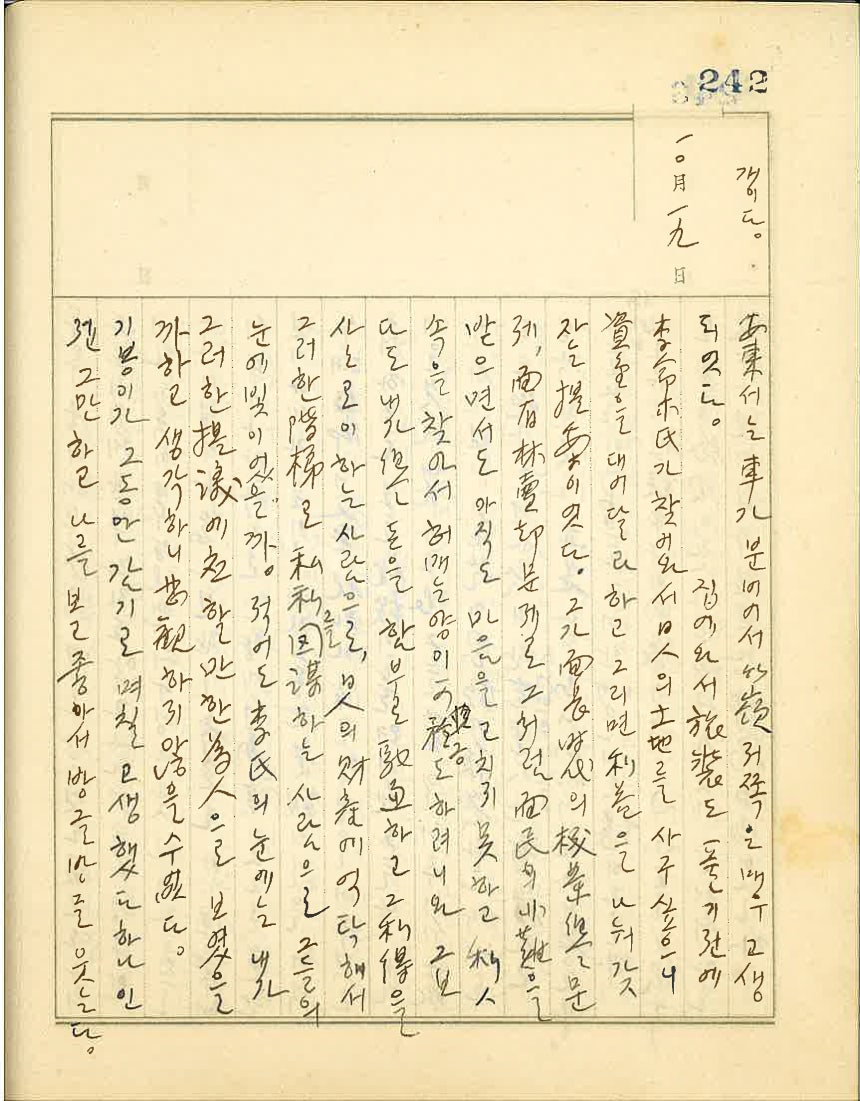 242
갰다。
一〇月 一九 日
安東서는 車가 붐비어서 竹嶺 저쪽은 매우 고생
되었다。 집에 와서 旅裝도 풀기 전에
李 氏가 찾어와서 日人의 土地를 사구 싶으니
資金을 대어 달라 하고 그리면 利益을 나눠 갖
자는 提案이였다。 그가 面長時代의 문
제, 面有林賣却 문제로 그처럼 面民의 非難을
받으면서도 아직도 마음을 고치지 못하고 私人
속을 찾아서 허매는 양이 可 도 하려니와 그보
다도 내가 많은 돈을 함불로 融通하고 그 利得을
사노로이 하는 사람으로, 日人의 財産에 억탁해서
그러한 階梯로 私利를 圖謀하는 사람으로 그들의
눈에 빛이 었을까。 적어도 李氏의 눈에는 내가
그러한 提議에 할 만한 爲人으로 보였을
까 하고 생각하니 悲觀하지 않을 수 없다。
기봉이가 그동안 감기로 며칠 고생했다 하나 인
젠 그만하고 나를 보고 좋아서 방글방글 웃는다。